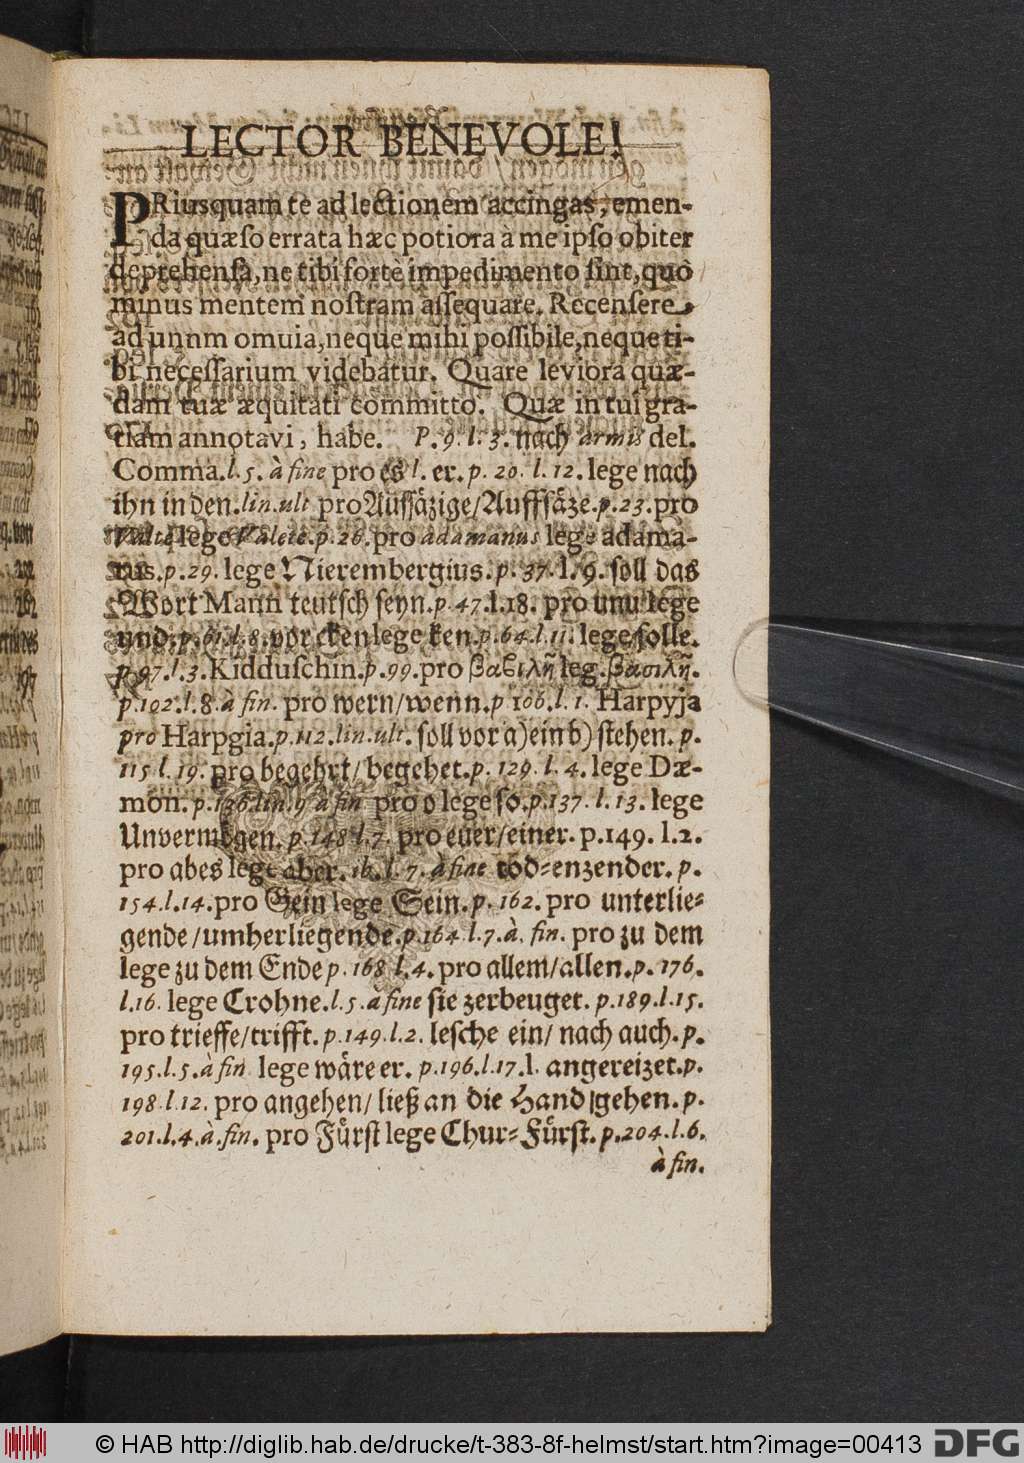 LECTOR BENEVOLE!
PRiusquam te ad lectionem accingas, emen-
da quæso errata hæc potiora à me ipso obiter
deprehensa, ne tibi fortè impedimento sint, quò
minus mentem nostram assequare. Recensere
ad unnm omuia, neque mihi possibile, neque ti-
bi necessarium videbatur. Quare leviora quæ-
dam tuæ æquitati committo. Quæ in tui gra-
tiam annotavi, habe. P. 9. l. 3. nach armis del.
Comma. l. 5. à fine pro es l. er. p. 20. l. 12. lege nach
ihn in den. lin. ult pro Aüssäzige/Auffsäze. p. 23. pro
Valte lege Valete. p. 26. pro adamanus lege adama-
tus. p. 29. lege Nierembergius. p. 37. l. 9. soll das
Wort Mann teutsch seyn. p. 47. l. 18. pro unu lege
und. p. 61. l. 8. vor cken lege ken. p. 64. l. 11. lege solle.
p. 97. l. 3. Kidduschin. p. 99. pro βαξιλῆ leg. βασιλῆ.
p. 102. l. 8. à fin. pro wern/wenn. p 106. l. 1. Harpyja
pro Harpgia. p. 112. lin. ult. soll vor a) ein b) stehen. p.
115 l. 19. pro begehrt/begehet. p. 129. l. 4. lege Dæ-
mon. p. 136 lin. 9 à fin pro o lege so. p. 137. l. 13. lege
Unvermögen. p. 148 l. 7. pro euer/einer. p. 149. l. 2.
pro abes lege aber. ib. l. 7. à fine tod-enzender. p.
154. l. 14. pro Gein lege Sein. p. 162. pro unterlie-
gende/umherliegende. p. 164 l. 7. à. fin. pro zu dem
lege zu dem Ende p. 168 l. 4. pro allem/allen. p. 176.
l. 16. lege Crohne. l. 5. à fine sie zerbeuget. p. 189. l. 15.
pro trieffe/trifft. p. 149. l. 2. lesche ein/ nach auch. p.
195. l. 5. à fin lege wäre er. p. 196. l. 17. l. angereizet. p.
198 l 12. pro angehen/ ließ an die Hand gehen. p.
201. l. 4. à. fin. pro Fürst lege Chur-Fürst. p. 204. l. 6.
à fin.
© HAB http://diglib.hab.de/drucke/t-383-8f-helmst/start.htm?image=00413
DFG